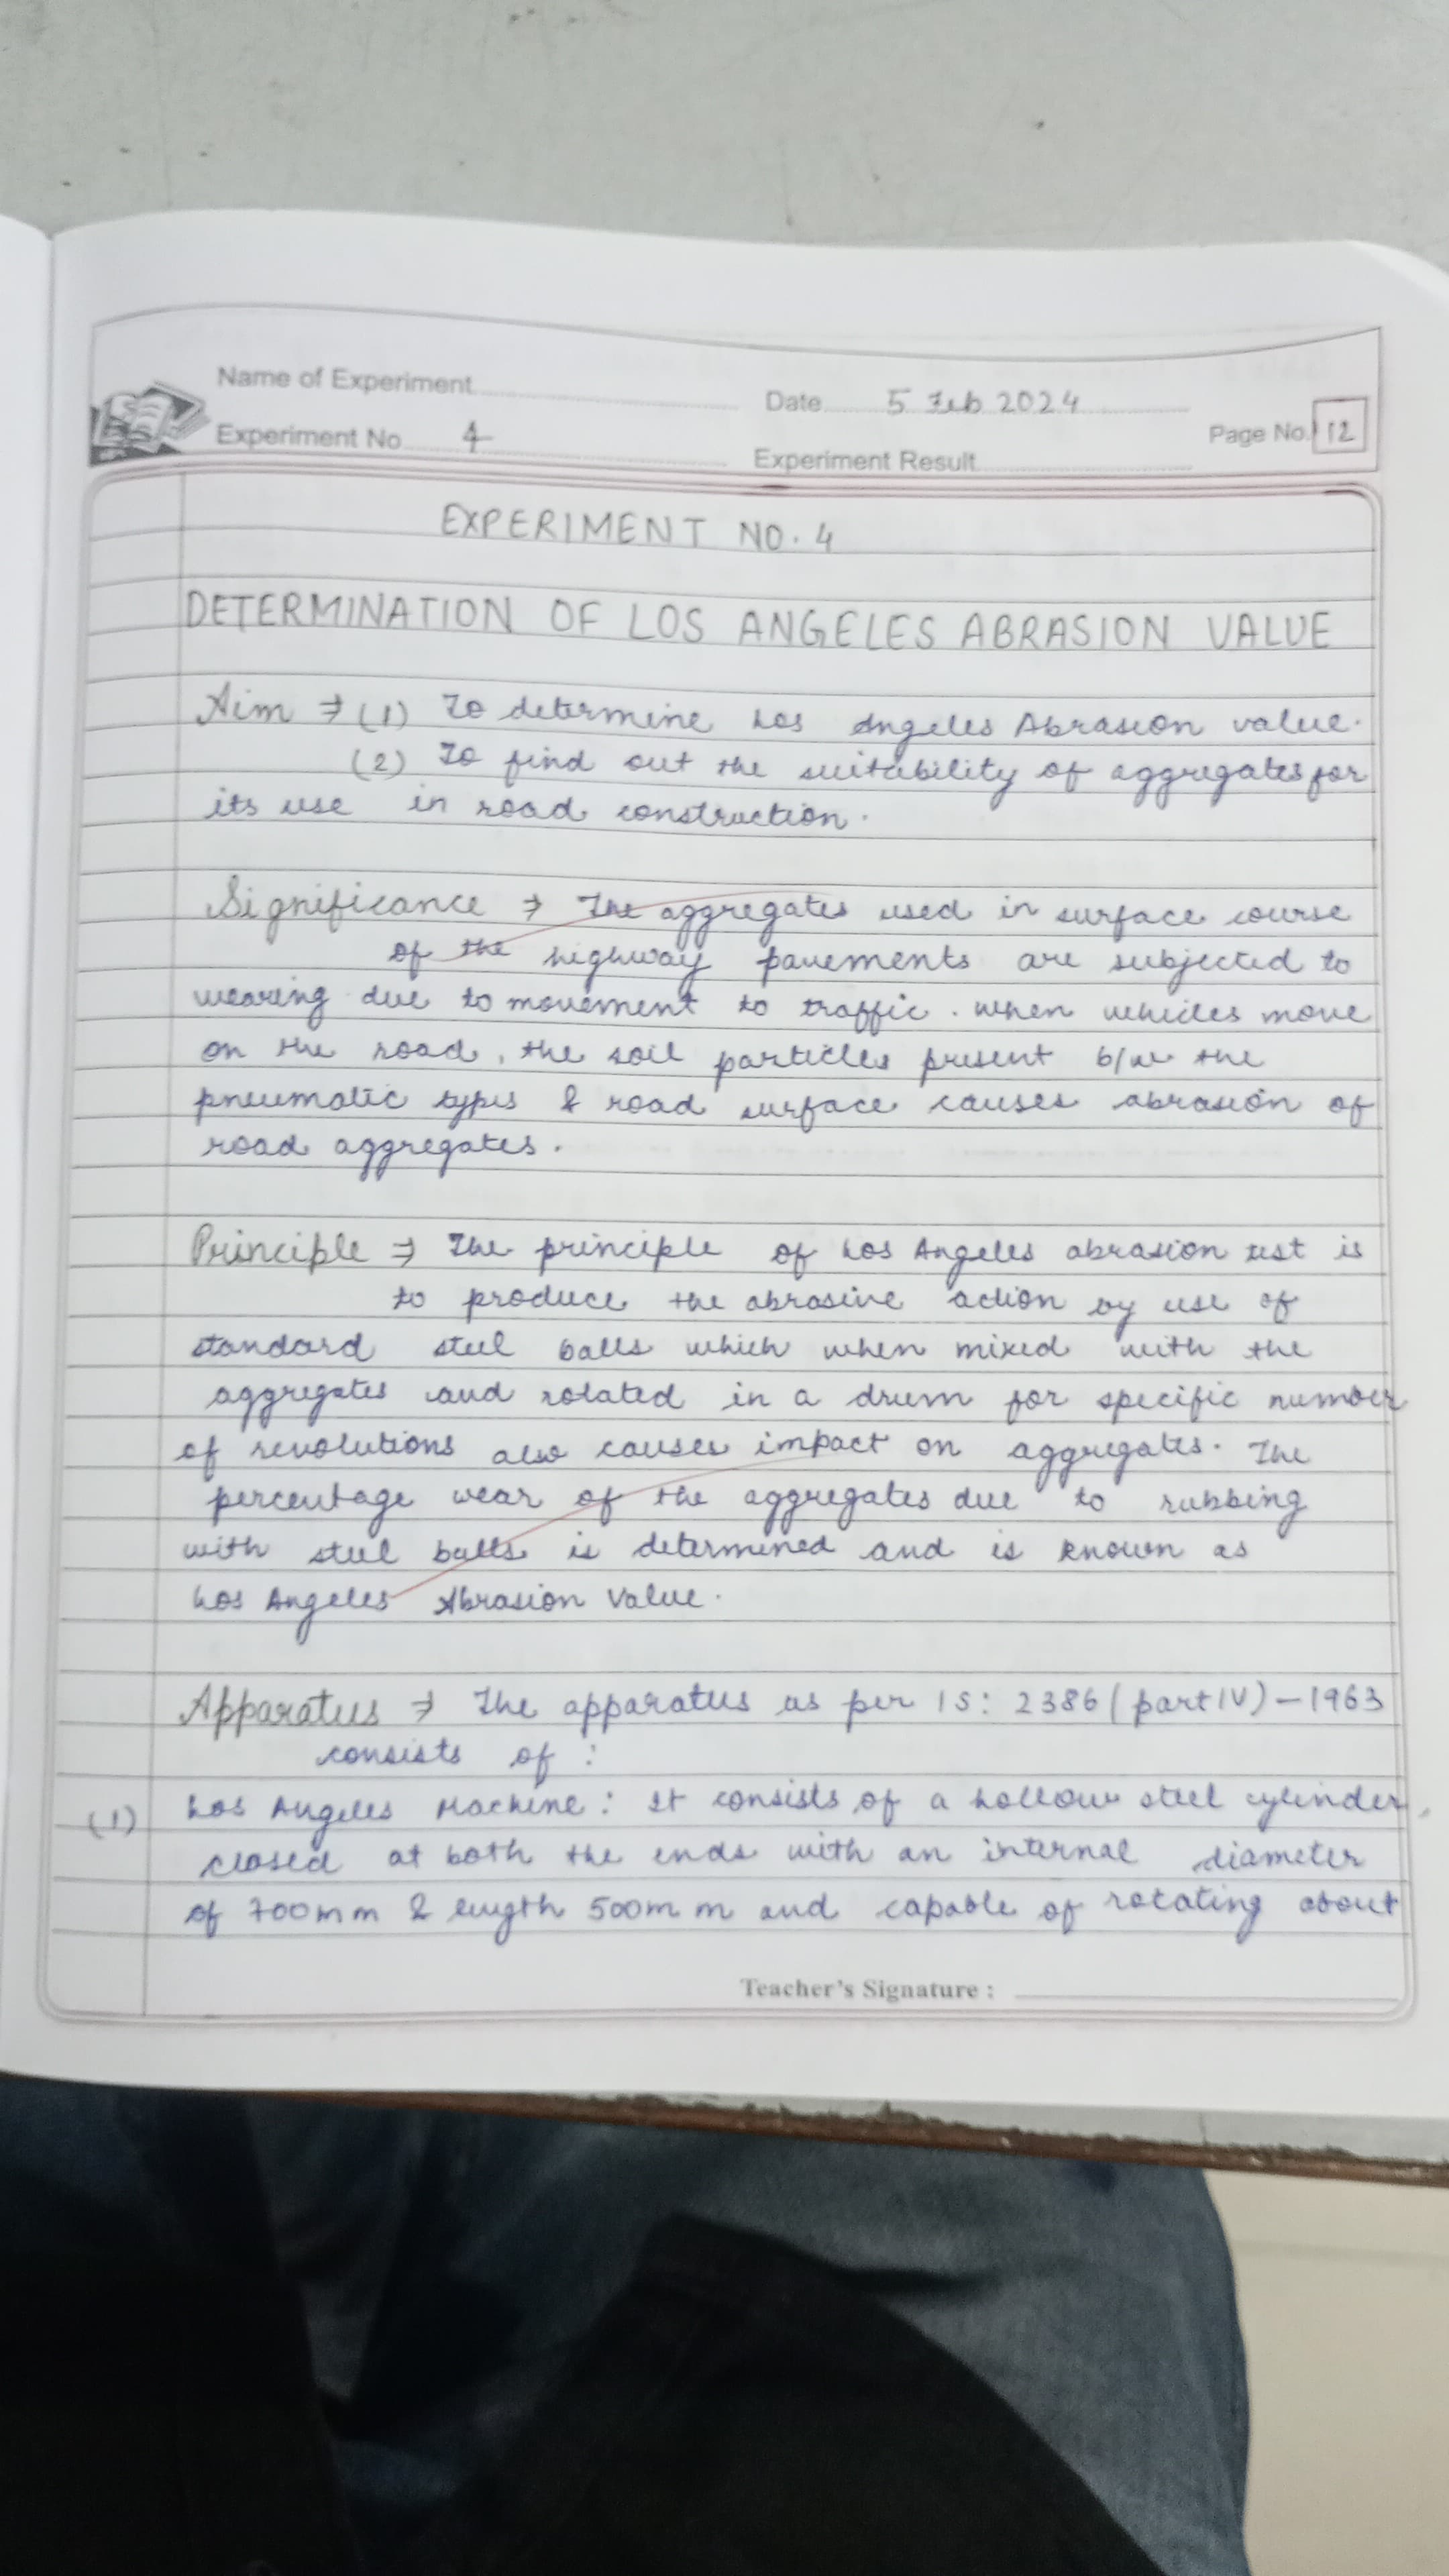 Name of Experiment
Date 5 Feb 2024
Experiment No. 4
Page No. 12
Experiment Result
EXPERIMENT NO. 4
DETERMINATION OF LOS ANGELES ABRASION VALUE
Aim ⇒ (1) To determine Los Angeles Abrasion value.
(2) To find out the suitability of aggregates for
its use in road construction.
Significance ⇒ The aggregates used in surface course
of the highway pavements are subjected to
wearing due to movement to traffic. When vehicles move
on the road, the soil particles present b/w the
pneumatic types & road surface causes abrasion of
road aggregates.
Principle ⇒ The principle of Los Angeles abrasion test is
to produce the abrasive action by use of
standard steel balls which when mixed with the
aggregates and rotated in a drum for specific number
of revolutions also causes impact on aggregates. The
percentage wear of the aggregates due to rubbing
with steel balls is determined and is known as
Los Angeles Abrasion Value.
Apparatus ⇒ The apparatus as per IS: 2386 (part IV) - 1963
consists of :
(1) Los Angeles Machine: It consists of a hollow steel cylinder,
closed at both the ends with an internal diameter
of 700mm & length 500mm and capable of rotating about
Teacher's Signature :